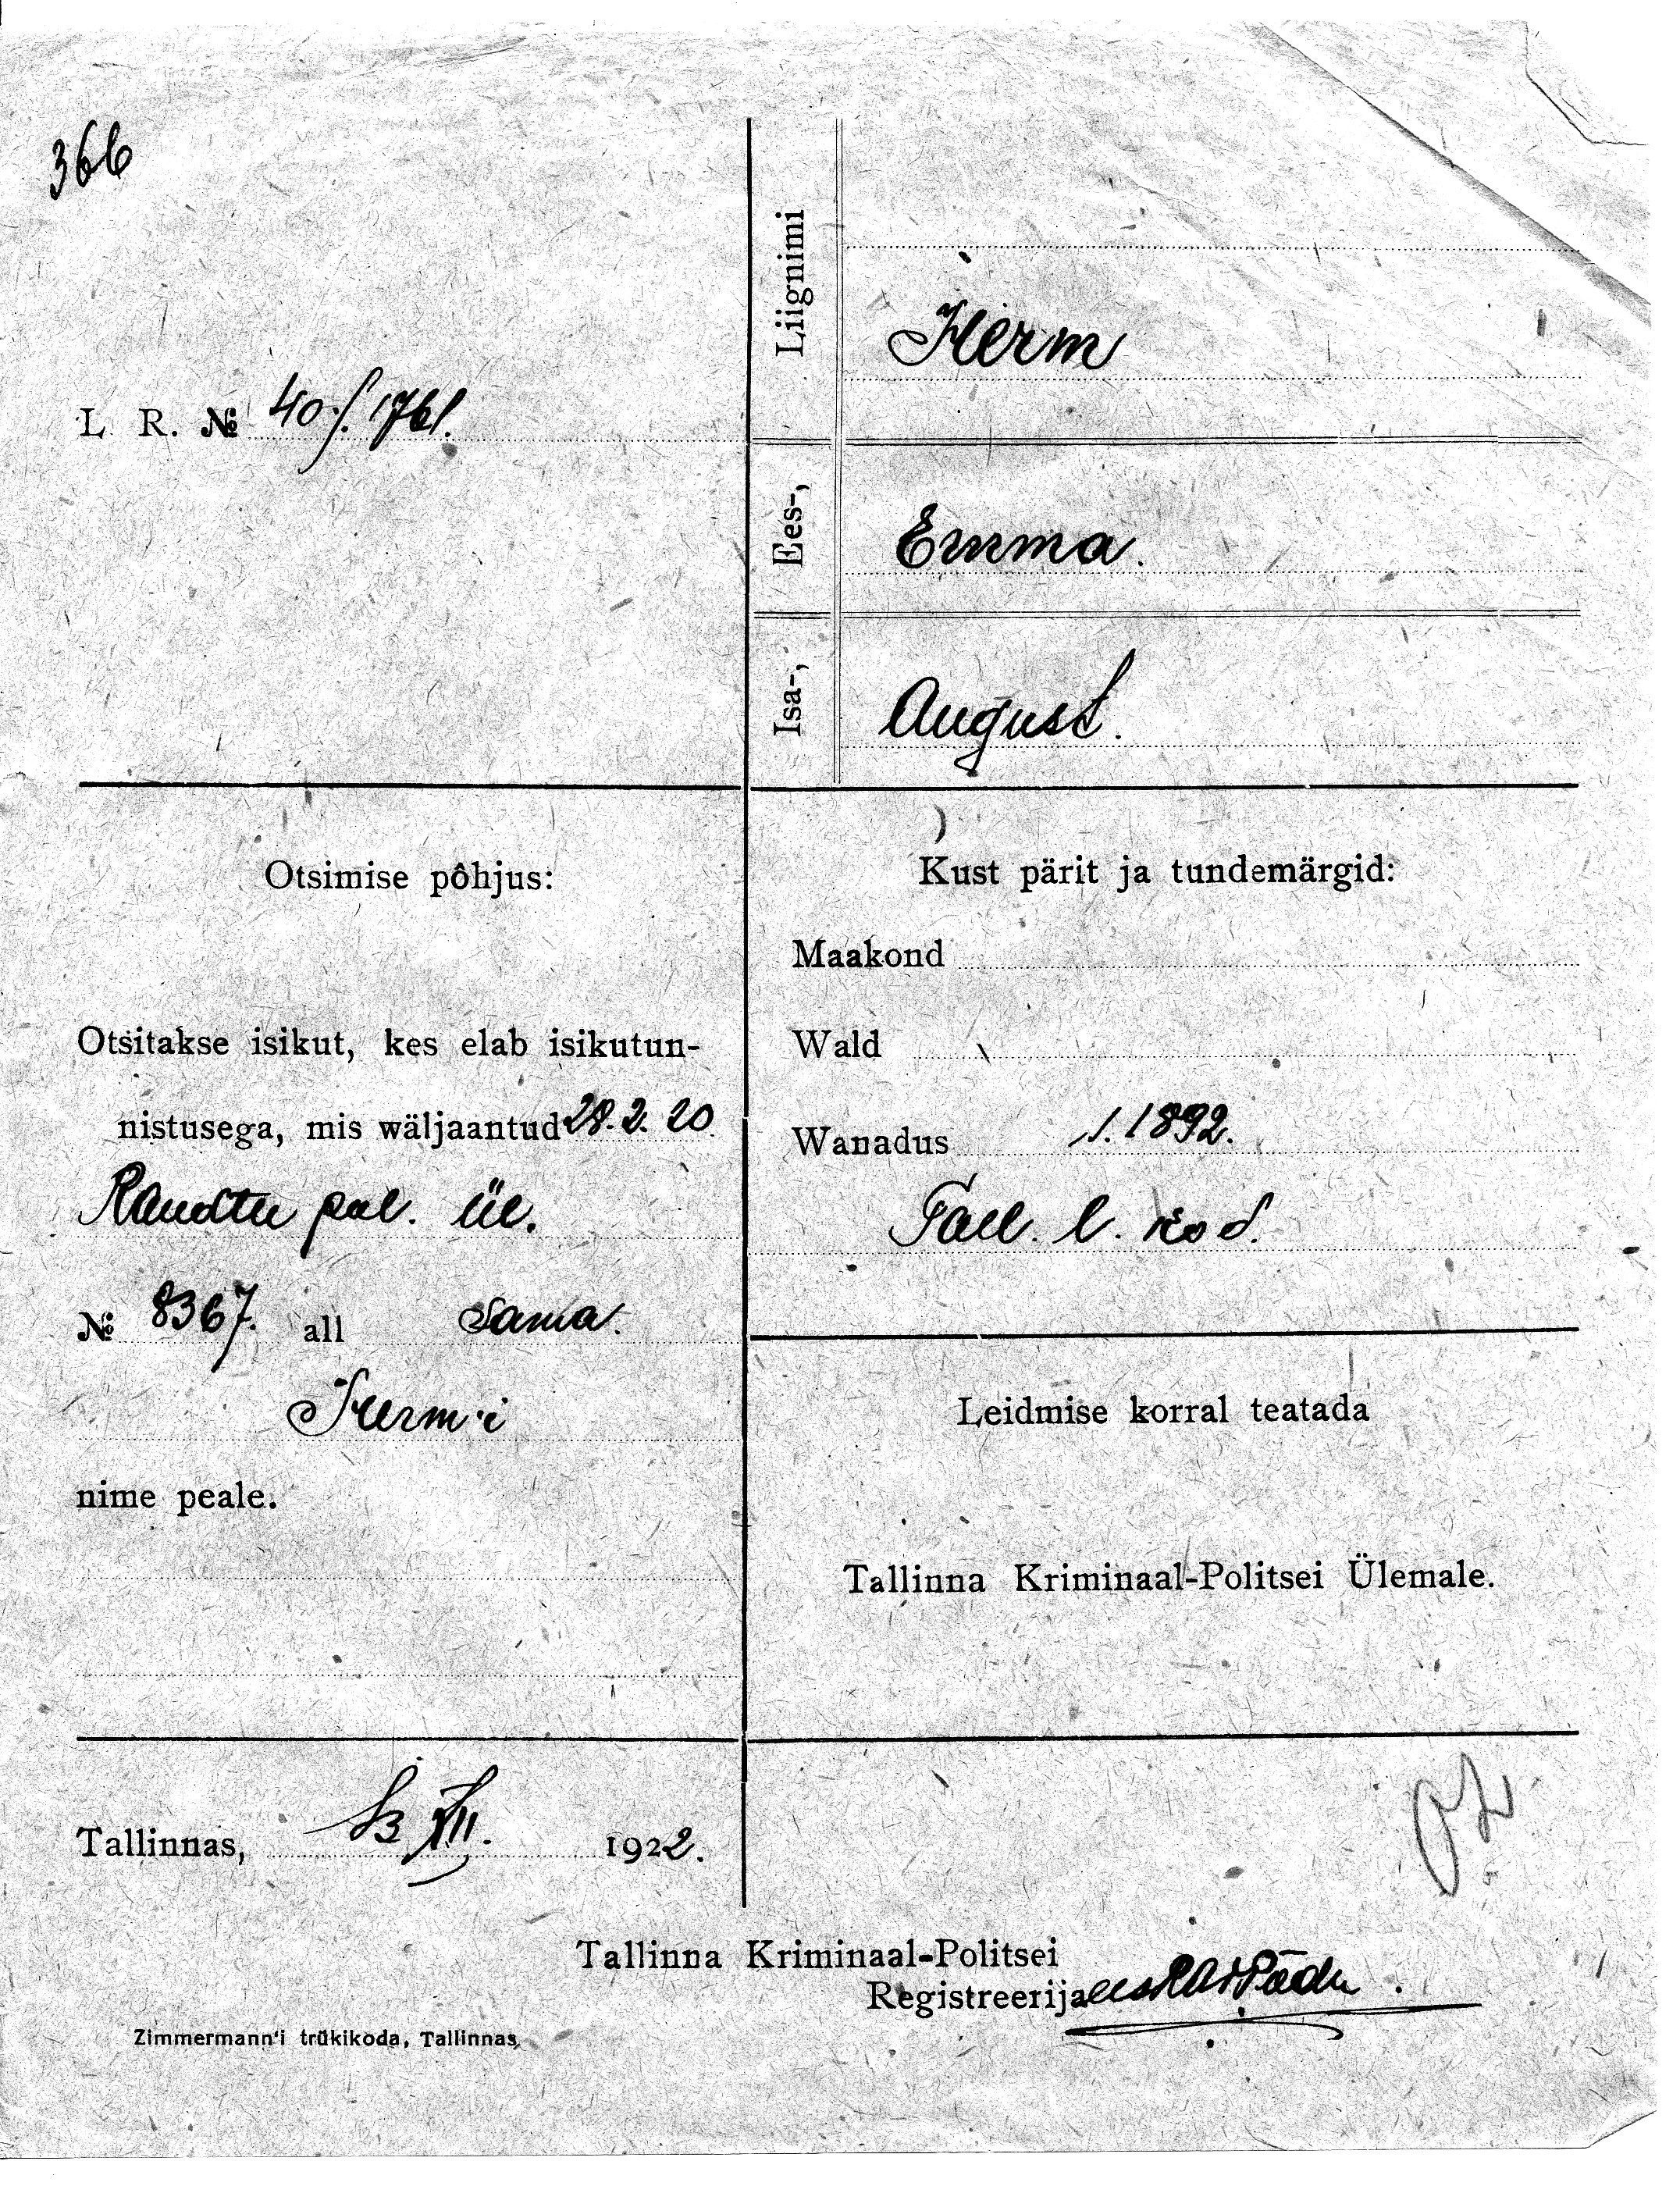 366
L. R. № 40./.1761.
Liignimi
Herm
Ees-,
Emma.
Isa-,
August.
Otsimise pôhjus:
Otsitakse isikut, kes elab isikutun-
nistusega, mis wäljaantud 28.2.20.
pol. ül.
№ 8367. all sama.
Herm'i
nime peale.
Kust pärit ja tundemärgid:
Maakond
Wald
Wanadus 1.1892.
Tall. l. kod.
Leidmise korral teatada
Tallinna Kriminaal-Politsei Ülemale.
Tallinnas, XII. 1922.
Tallinna Kriminaal-Politsei
Registreerija
Zimmermann'i trükikoda, Tallinnas.